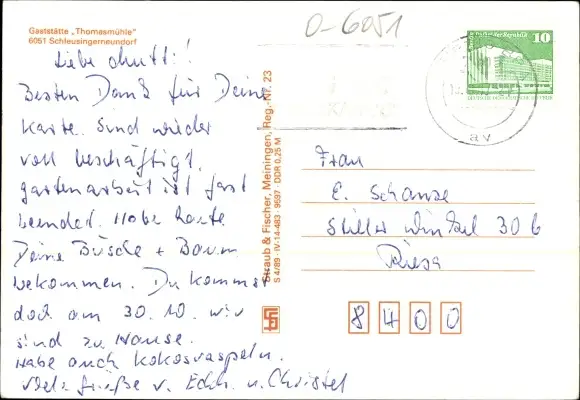 Gaststätte „Thomasmühle"
6051 Schleusingerneundorf
O-6051
Liebe Mutti!
Besten Dank für Deine
Karte. Sind wieder
voll beschäftigt,
gartenarbeit ist fast
beendet. Habe heute
Deine Büsche + Baum
bekommen. Du kommst
doch am 30.10. wir
sind zu Hause.
Habe auch Kokosraspeln.
Viele Grüße v. Eckh. u. Christel
Straub & Fischer, Meiningen, Reg.-Nr. 23
S 4/89 · IV-14-483 · 9697 · DDR 0,25 M
10
av
Frau
E. Schanze
Stiller Winkel 30 b
Riesa
8400